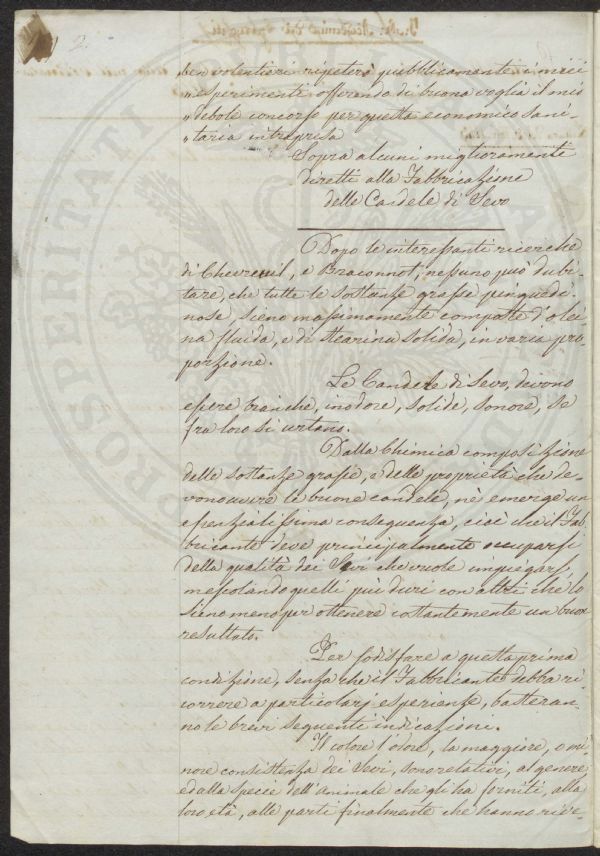 2
ben volentieri ripeterò pubblicamente i miei
" esperimenti offrendo di buona voglia il mio
" debole concorso per questa economico sani-
" taria intrapresa
Sopra alcuni miglioramenti
diretti alla Fabbricazione
delle Candele di Sevo
Dopo le interessanti ricerche
di Chevreuil, e Braconnot, nessuno può dubi-
tare, che tutte le sostanze grasse pinguedi-
nose, sieno massimamente composte d'olei-
na fluida, e di stearina solida, in varia pro-
porzione.
Le Candele di Sevo, devono
essere bianche, inodore, solide, sonore, se
fra loro si urtano.
Dalla Chimica composizione
delle sostanze grasse, e delle proprietà che de-
vono avere le buone candele, nè emerge un
essenzialissima conseguenza, cioè che il Fab-
bricante deve principalmente occuparsi
della qualità dei Sevi che vuole impiegare,
mescolando quelli più duri con altri che lo
sieno meno per ottenere costantemente un buon
resultato.
Per sodisfare a questa prima
condizione, senza che il Fabbricante debba ri-
correre a particolarj esperienze, basteran-
no le brevi seguenti indicazioni.
Il colore l'olore, la maggiore, o mi-
nore consistenza dei Sevi, sono relativi, al genere,
ed alla specie dell'animale che gli ha forniti, alla
loro età, alle parti finalmente che hanno rive-
PROSPERITATI PUBLICAE